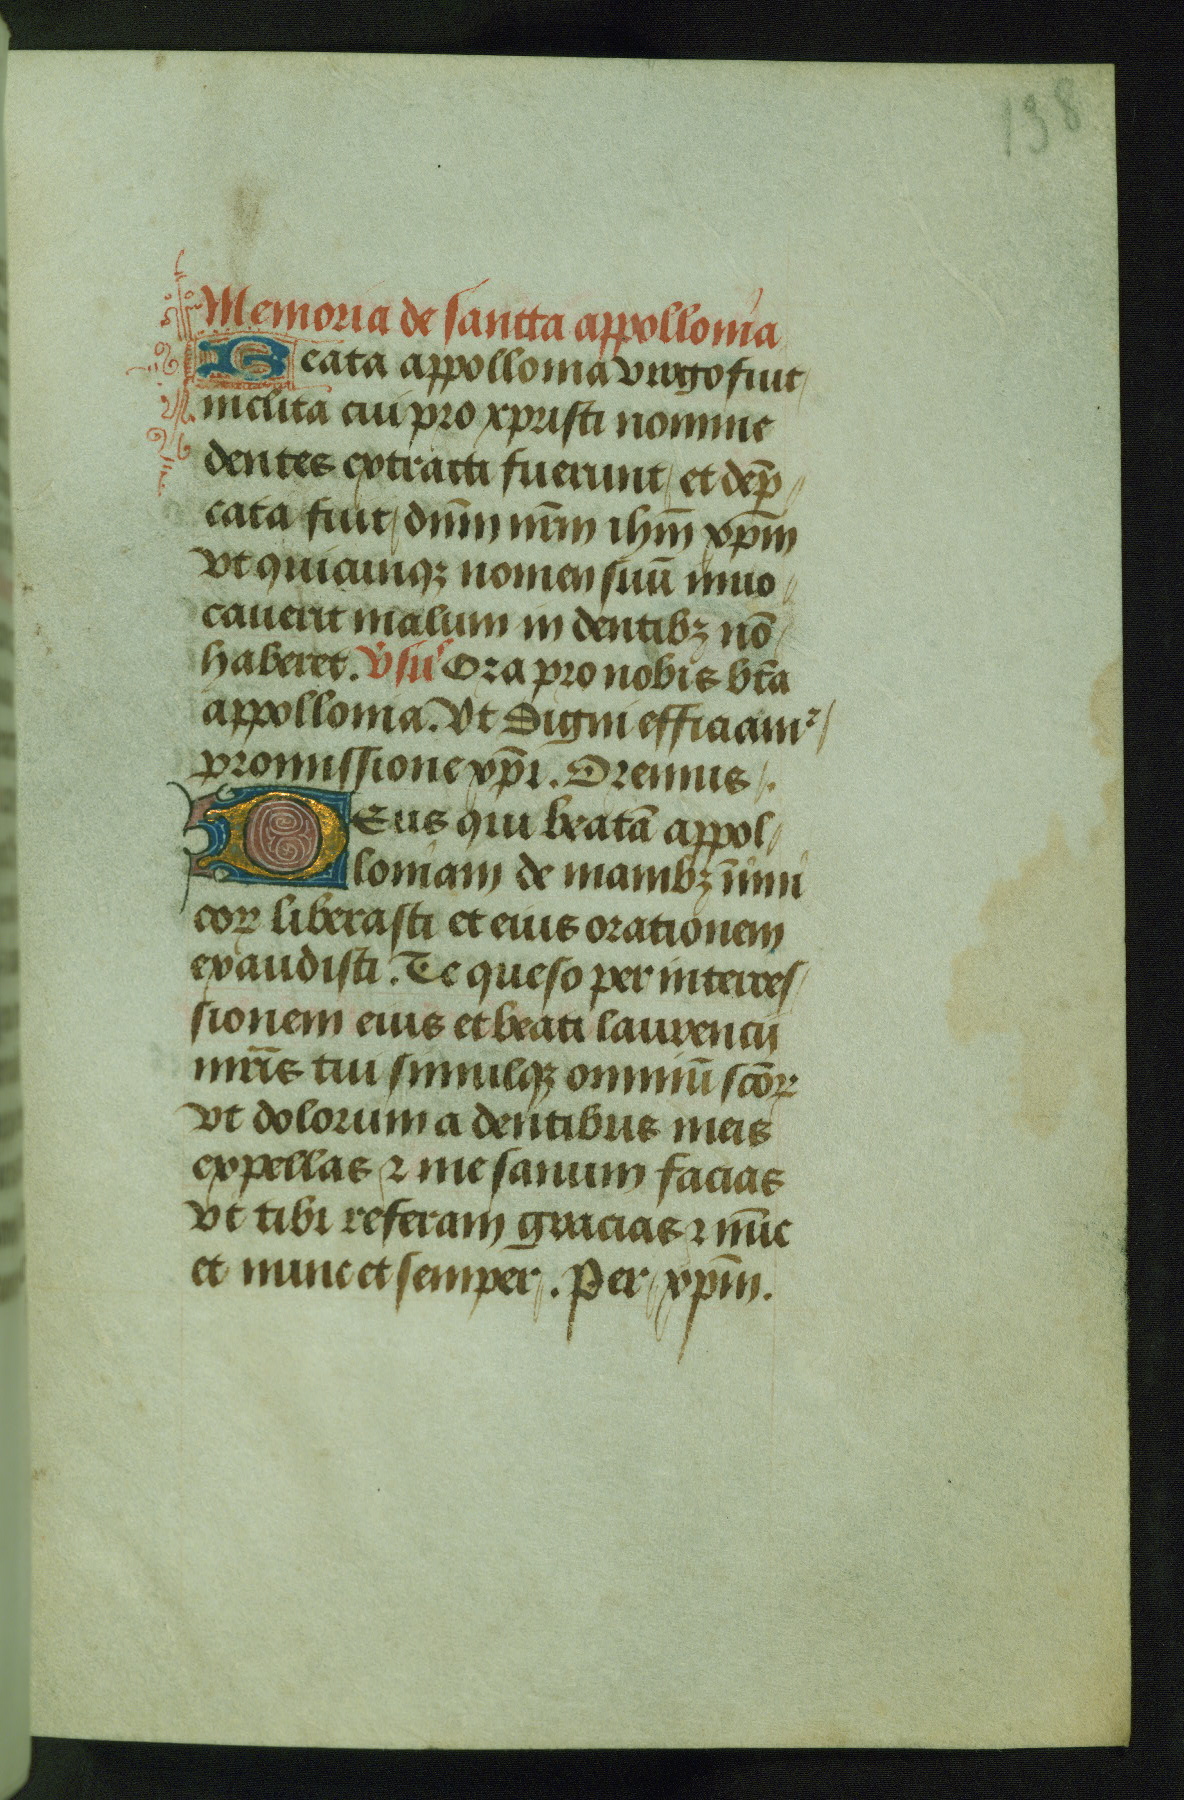 138
Memoria de sancta appollonia
Beata appollonia virgo fuit
inclita cui pro xpristi nomine
dentes extracti fuerunt / et dep̄ /
cata fuit / dn̄m nr̄m ihm̄ xp̄m
vt quicunqꝫ nomen suū inuo /
cauerit malum in dentibꝫ nō /
haberet. v̄sū Ora pro nobis bt̄a
appollonia. Vt digni efficiamꝛ /
promissione xp̄i. Oremus /.
Deus qui beatā appol /
loniam de manibꝫ īimi
coꝝ liberasti et eius orationem
exaudisti. Te queso per interces /
sionem eius et beati laurencii
mr̄is tui simulqꝫ omniū sc̄oꝝ
vt dolorum a dentibus meis
expellas ⁊ me sanum facias
vt tibi referam gracias ⁊ nūc
et nunc et semper /. Per / xp̄m.